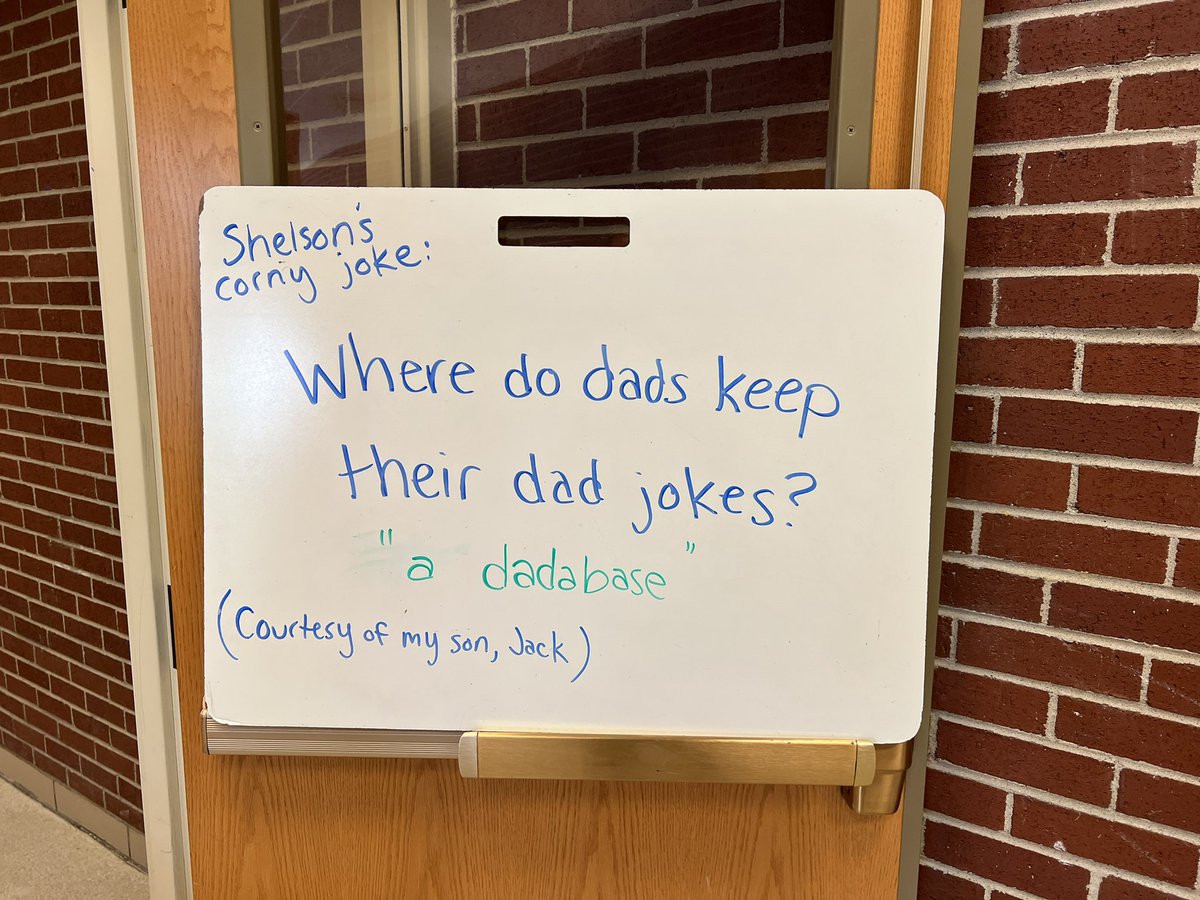 Shelson's
corny joke:
Where do dads keep
their dad jokes?
"a dadabase"
(Courtesy of my son, Jack)